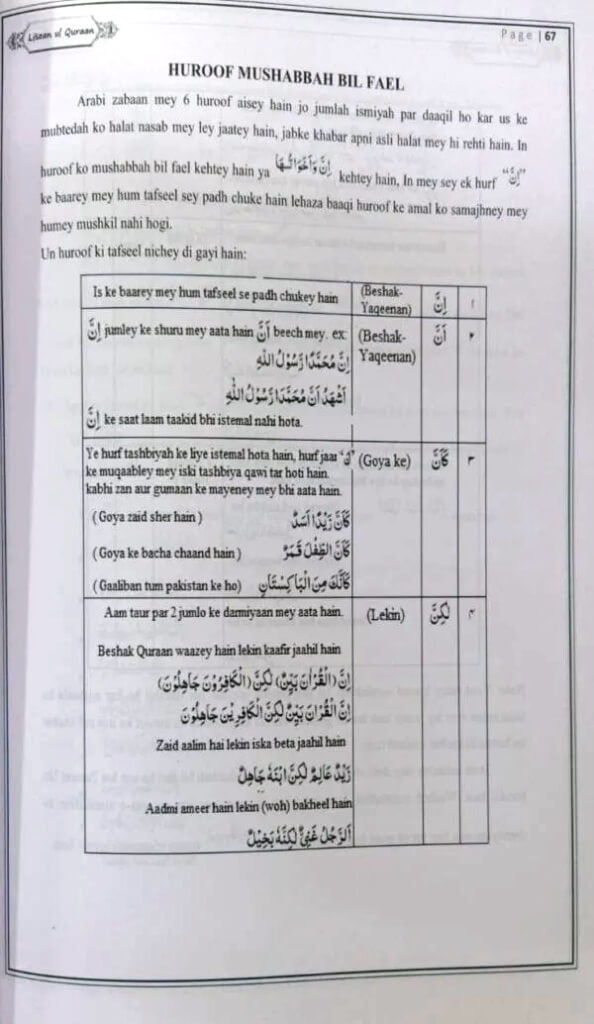 Lisaan ul Quraan
Page | 67
HUROOF MUSHABBAH BIL FAEL
Arabi zabaan mey 6 huroof aisey hain jo jumlah ismiyah par daaqil ho kar us ke
mubtedah ko halat nasab mey ley jaatey hain, jabke khabar apni asli halat mey hi rehti hain. In
huroof ko mushabbah bil fael kehtey hain ya إِنَّ وَأَخَوَاتُهَا kehtey hain, In mey sey ek hurf "إِنَّ"
ke baarey mey hum tafseel sey padh chuke hain lehaza baaqi huroof ke amal ko samajhney mey
humey mushkil nahi hogi.
Un huroof ki tafseel nichey di gayi hain:
Is ke baarey mey hum tafseel se padh chukey hain (Beshak-Yaqeenan) إِنَّ ١
إِنَّ jumley ke shuru mey aata hain أَنَّ beech mey. ex: (Beshak-Yaqeenan) أَنَّ ٢
إِنَّ مُحَمَّدًا رَّسُوْلُ اللهِ
أَشْهَدُ أَنَّ مُحَمَّدًا رَّسُوْلُ اللهِ
إِنَّ ke saat laam taakid bhi istemal nahi hota.
Ye hurf tashbiyah ke liye istemal hota hain, hurf jaar "كَ" (Goya ke) كَأَنَّ ٣
ke muqaabley mey iski tashbiya qawi tar hoti hain.
kabhi zan aur gumaan ke mayeney mey bhi aata hain.
( Goya zaid sher hain ) كَأَنَّ زَيْدًا أَسَدٌ
( Goya ke bacha chaand hain ) كَأَنَّ الطِّفْلَ قَمَرٌ
( Gaaliban tum pakistan ke ho) كَأَنَّكَ مِنَ الْبَاكِسْتَانِ
Aam taur par 2 jumlo ke darmiyaan mey aata hain. (Lekin) لٰكِنَّ ٤
Beshak Quraan waazey hain lekin kaafir jaahil hain
إِنَّ (الْقُرْاٰنَ بَيِّنٌ) لٰكِنَّ (الْكَافِرُوْنَ جَاهِلُوْنَ)
إِنَّ الْقُرْاٰنَ بَيِّنٌ لٰكِنَّ الْكَافِرِيْنَ جَاهِلُوْنَ
Zaid aalim hai lekin iska beta jaahil hain
زَيْدٌ عَالِمٌ لٰكِنَّ ابْنَهٗ جَاهِلٌ
Aadmi ameer hain lekin (woh) bakheel hain
اَلرَّجُلُ غَنِيٌّ لٰكِنَّهٗ بَخِيْلٌ